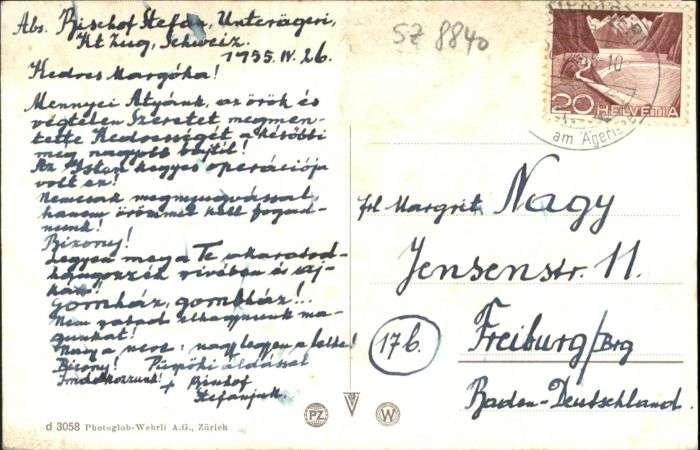 Abs. Bischof Stefan, Unterägeri,
Kt Zug, Schweiz.
1955. IV. 26.
Kedves Margóka!
Mennyei Atyánk, az örök és
végtelen Szeretet megmen-
tette Kedvességét a későbbi
még nagyobb bajtól!
Az Isten kegyes operációja
volt ez!
Nemcsak megnyugvással,
hanem örömmel kell fogad-
nunk!
Bizony!
Legyen meg a Te akaratod-
szívében és aj-
kán!
Gondház, gondház!..
Nem szabad elhagynunk ma-
gunkat!
Nagy a neve, nagy legyen a lelke!
Bizony! Püspöki áldással
Imádkozzunk! +
SZ 8840
20 HELVETIA
am Ägeris
Frl Margrit Nagy
Jensenstr. 11.
17b. Freiburg/Brg
Baden-Deutschland.
d 3058 Photoglob-Wehrli A.G., Zürich
PZ W